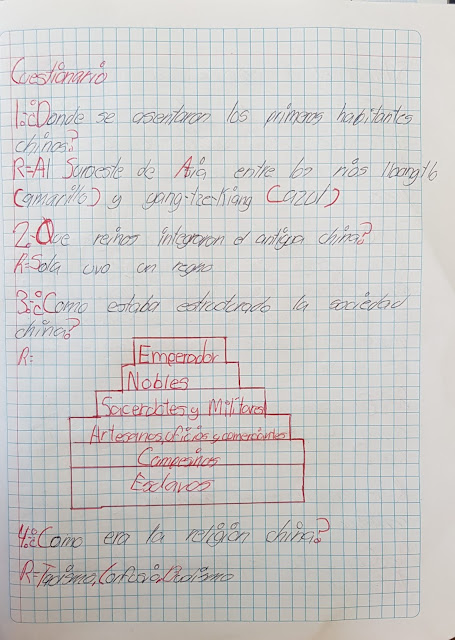 Cuestionario
1.-¿Donde se asentaron los primeros habitantes
chinos?
R=Al Suroeste de Asia entre los rios
(amarillo) y yang-tze-Kiang (azul)
2.-Que reinos integraron el antigua china?
R=Solo uvo un regno
3.-¿Como estaba estructurado la sociedad
china?
R=
Emperador
Nobles
Sacerdotes y Militares
Artesanos, oficios y comerciantes
Campesinos
Esclavos
4.-¿Como era la religión china?
R=Taoismo,